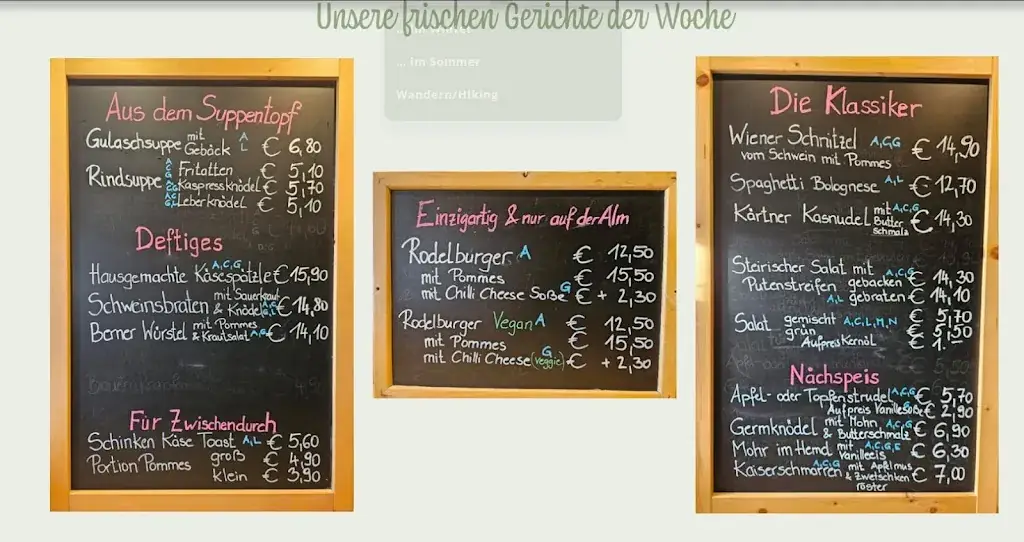 Unsere frischen Gerichte der Woche
... im Winter
... im Sommer
Wandern/Hiking
Aus dem Suppentopf
Gulaschsuppe mit Gebäck A L € 6,80
Rindsuppe Fritatten € 5,10
Kaspressknödel € 5,70
Leberknödel € 5,10
Deftiges
Hausgemachte Käsespätzle A,C,G € 15,90
Schweinsbraten mit Sauerkraut & Knödel € 14,80
Berner Würstel mit Pommes & Krautsalat A,G € 14,10
Für Zwischendurch
Schinken Käse Toast A,L € 5,60
Portion Pommes groß € 4,90
klein € 3,90
Einzigartig & nur auf der Alm
Rodelburger A € 12,50
mit Pommes € 15,50
mit Chilli Cheese Soße G € + 2,30
Rodelburger Vegan A € 12,50
mit Pommes € 15,50
mit Chilli Cheese (veggie) G € + 2,30
Die Klassiker
Wiener Schnitzel A,C,G € 14,90
vom Schwein mit Pommes
Spaghetti Bolognese A,L € 12,70
Kärtner Kasnudel mit Butterschmalz A,C,G € 14,30
Steirischer Salat mit A,C,G € 14,30
Putenstreifen gebacken
A,L gebraten € 14,10
Salat gemischt A,C,L,M,N € 5,70
grün € 5,50
Aufpreis Kernöl € 1.-
Nachspeis
Apfel- oder Topfenstrudel A,C,G € 5,70
Aufpreis Vanillesoße G € 2,90
Germknödel mit Mohn & Butterschmalz A,C,G € 6,90
Mohr im Hemd mit Vanilleeis A,C,G,E € 6,30
Kaiserschmarren A,C,G mit Apfelmus & Zwetschken röster € 7,00